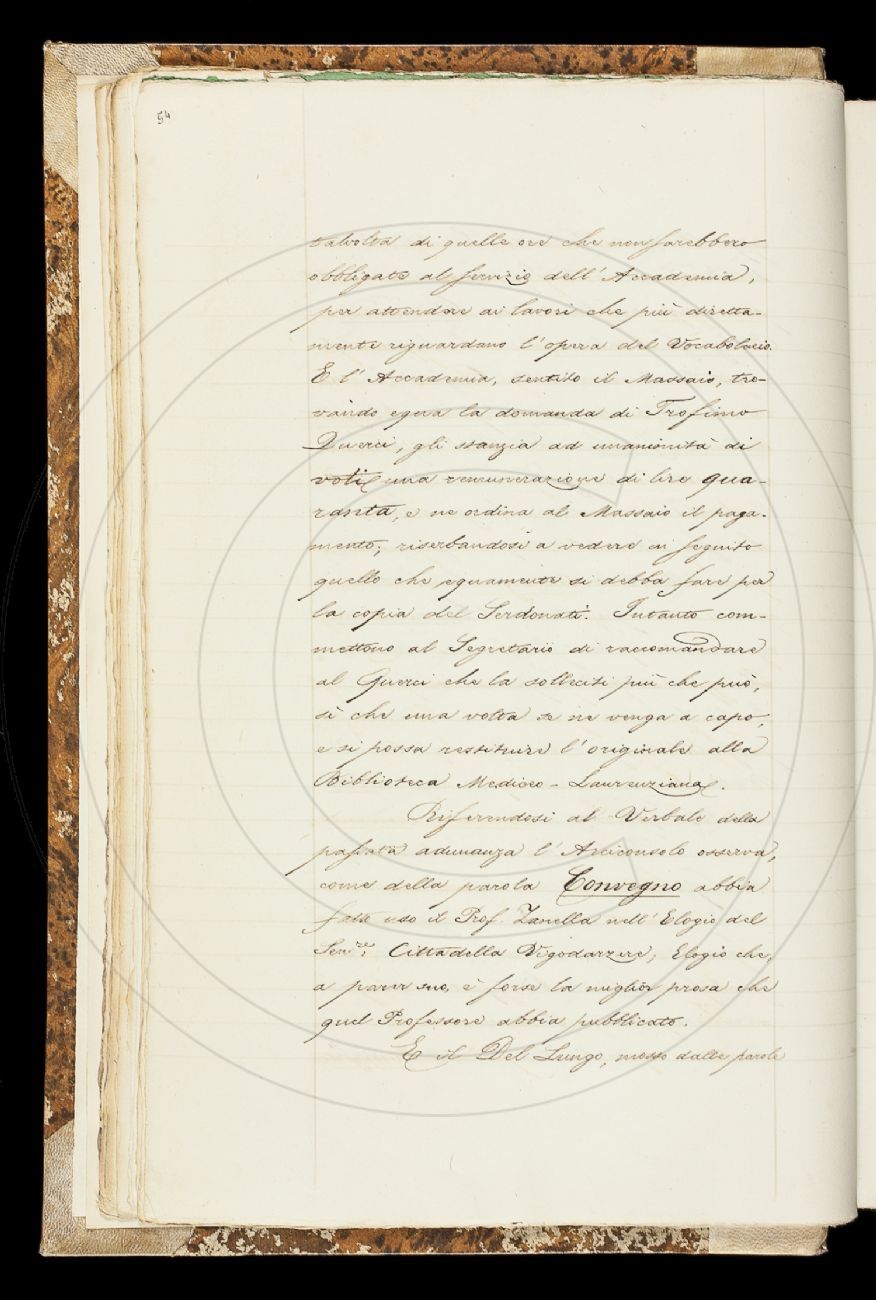 54
talvolta di quelle ore che non sarebbero
obbligate al servizio dell'Accademia,
per attendere ai lavori che più diretta-
mente riguardano l'opera del Vocabolario.
E l'Accademia, sentito il Massaio, tro-
vando equa la domanda di Trofimo
Querci, gli stanzia ad unanimità di
voti una remunerazione di lire qua-
ranta, e ne ordina al Massaio il paga-
mento; riserbandosi a vedere in seguito
quello che equamente si debba fare per
la copia del Serdonati. Intanto com-
mettono al Segretario di raccomandare
al Querci che la solleciti più che può,
sì che una volta se ne venga a capo,
e si possa restituire l'originale alla
Biblioteca Mediceo-Laurenziana.
Riferendosi al Verbale della
passata adunanza l'Arciconsolo osserva,
come della parola Convegno abbia
fatto uso il Prof. Zanella nell'Elogio del
Sen.re Cittadella Vigodarzere; Elogio che,
a parer suo, è forse la miglior prosa che
quel Professore abbia pubblicato.
E il Del Lungo, mosso dalle parole